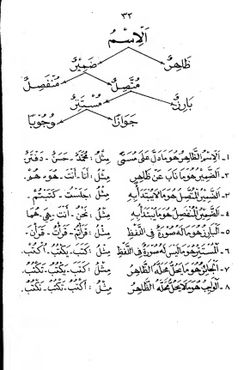 ٣٢
اَلْاِسْمُ
ظَاهِرٌ ضَمِيْرٌ
مُتَّصِلٌ مُنْفَصِلٌ
بَارِزٌ مُسْتَتِرٌ
جَوَازًا وُجُوْبًا
١- اَلْاِسْمُ الظَّاهِرُ هُوَ مَا دَلَّ عَلَى مُسَمًّى مِثْلُ : مُحَمَّدٌ - حَسَنٌ - دَفْتَرٌ.
٢- الضَّمِيْرُ هُوَ مَا نَابَ عَنْ ظَاهِرٍ مِثْلُ : أَنَا - أَنْتَ - هُوَ - هُوَ.
٣- الضَّمِيْرُ الْمُتَّصِلُ هُوَ مَا لَا يُبْتَدَأُ بِهِ مِثْلُ : جَلَسْتُ - كَتَبْتُمْ.
٤- الضَّمِيْرُ الْمُنْفَصِلُ هُوَ مَا يُبْتَدَأُ بِهِ مِثْلُ : نَحْنُ - أَنْتِ - هِيَ - هُمَا
٥- اَلْبَارِزُ هُوَ مَا لَهُ صُوْرَةٌ فِي اللَّفْظِ مِثْلُ : قُرْآنُكُمْ - قَرَأْتُ - قَرَأْنَ.
٦- اَلْمُسْتَتِرُ هُوَ مَا لَيْسَ لَهُ صُوْرَةٌ فِي اللَّفْظِ مِثْلُ : كَتَبَ - يَكْتُبُ - اُكْتُبْ.
٧- اَلْجَائِزُ هُوَ مَا يَحُلُّ مَحَلَّهُ الظَّاهِرُ مِثْلُ : كَتَبَ - يَكْتُبُ - تَكْتُبُ.
٨- اَلْوَاجِبُ هُوَ مَا لَا يَحُلُّ مَحَلَّهُ الظَّاهِرُ مِثْلُ : أَكْتُبُ - نَكْتُبُ - تَكْتُبُ.